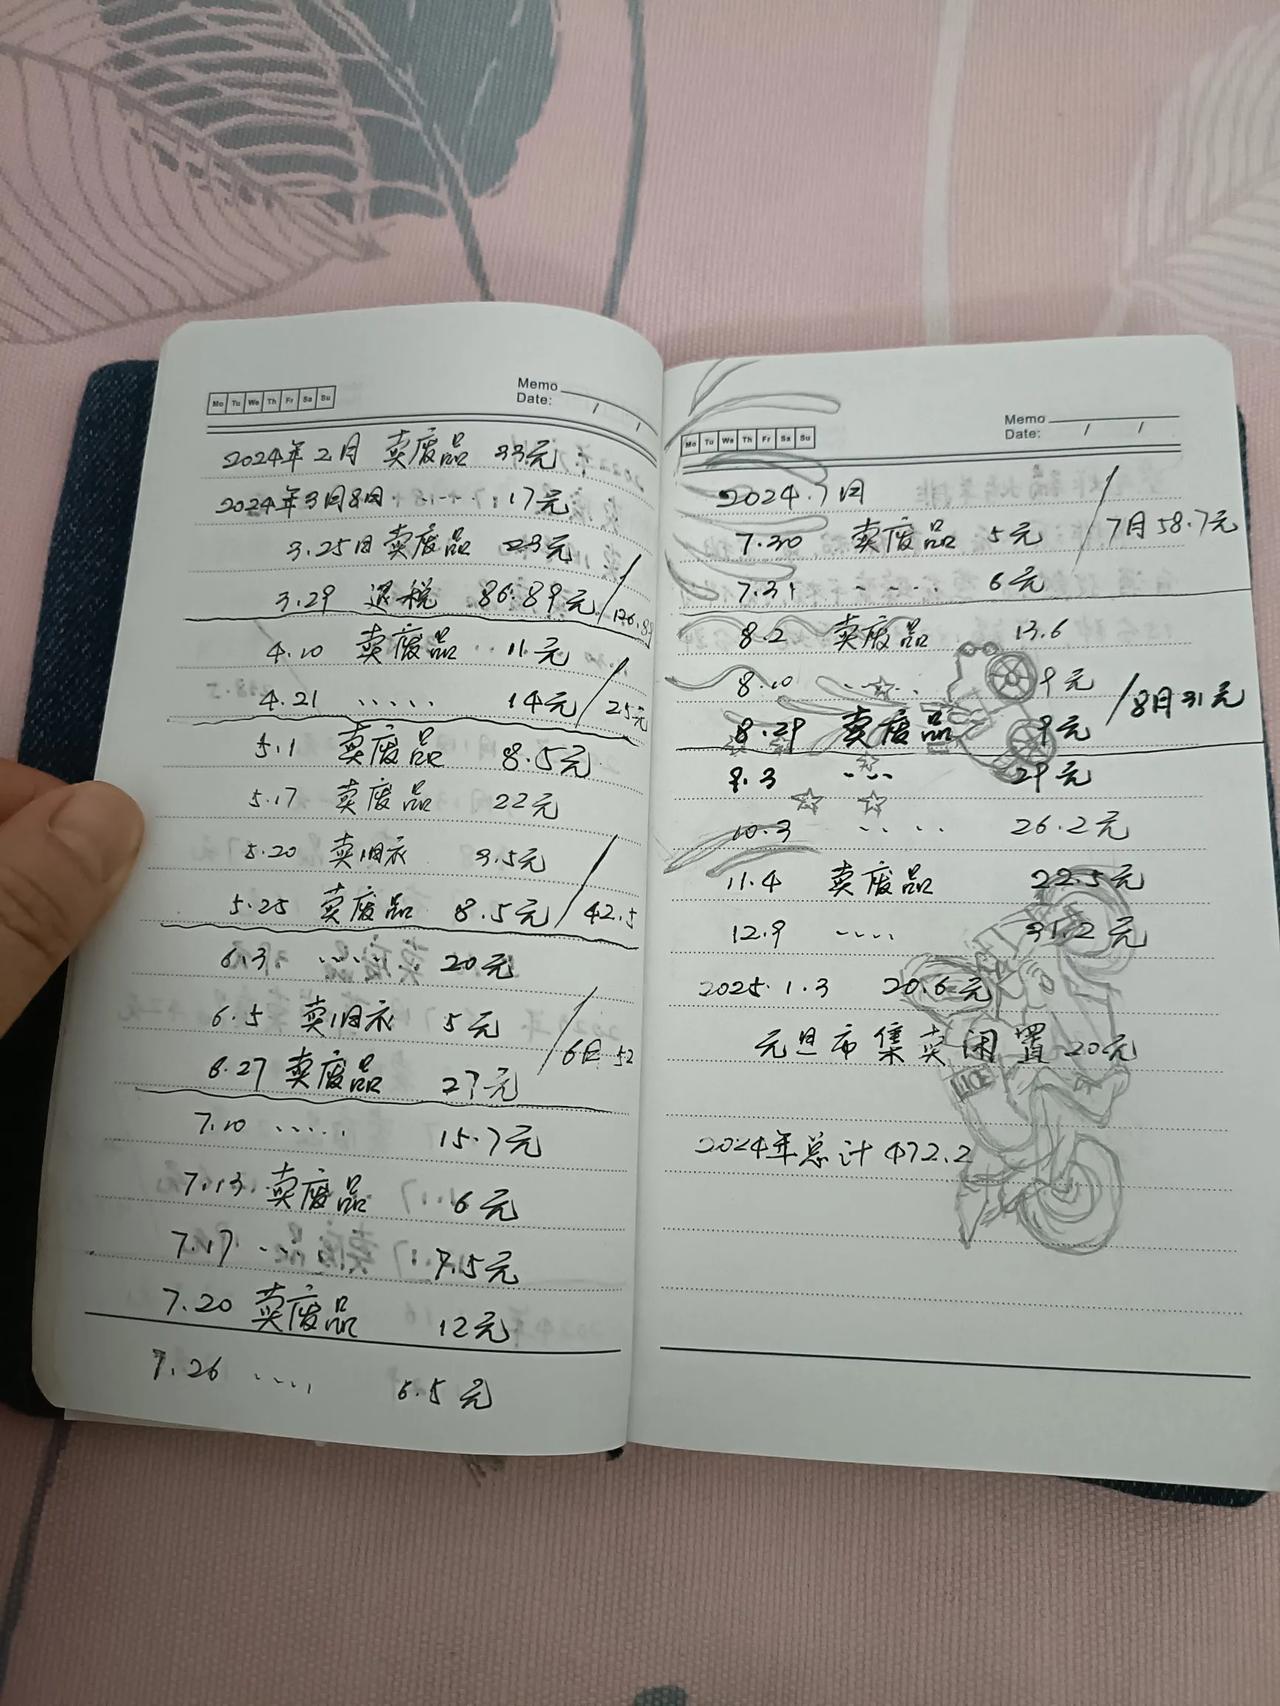 Mo Tu We Th Fr Sa Su
Memo
Date: / /
2024年2月 卖废品 33元
2024年3月8日 ..... 17元
3.25日 卖废品 23元
3.29 退税 86.89元/126.89
4.10 卖废品 11元
4.21 ..... 14元/25元
5.1 卖废品 8.5元
5.17 卖废品 22元
5.20 卖旧衣 3.5元
5.25 卖废品 8.5元/42.5
6.3 ..... 20元
6.5 卖旧衣 5元
6.27 卖废品 27元/6月52
7.10 ..... 15.7元
7.13 卖废品 6元
7.17 .... 7.5元
7.20 卖废品 12元
7.26 .... 6.5元
Mo Tu We Th Fr Sa Su
Memo
Date: / /
2024.7月
7.30 卖废品 5元 /7月58.7元
7.31 .... 6元
8.2 卖废品 13.6
8.10 ..... 9元
8.29 卖废品 9元 /8月31元
9.3 .... 29元
10.3 .... 26.2元
11.4 卖废品 22.5元
12.9 .... 31.2元
2025.1.3 20.6元
元旦市集卖闲置20元
2024年总计472.2